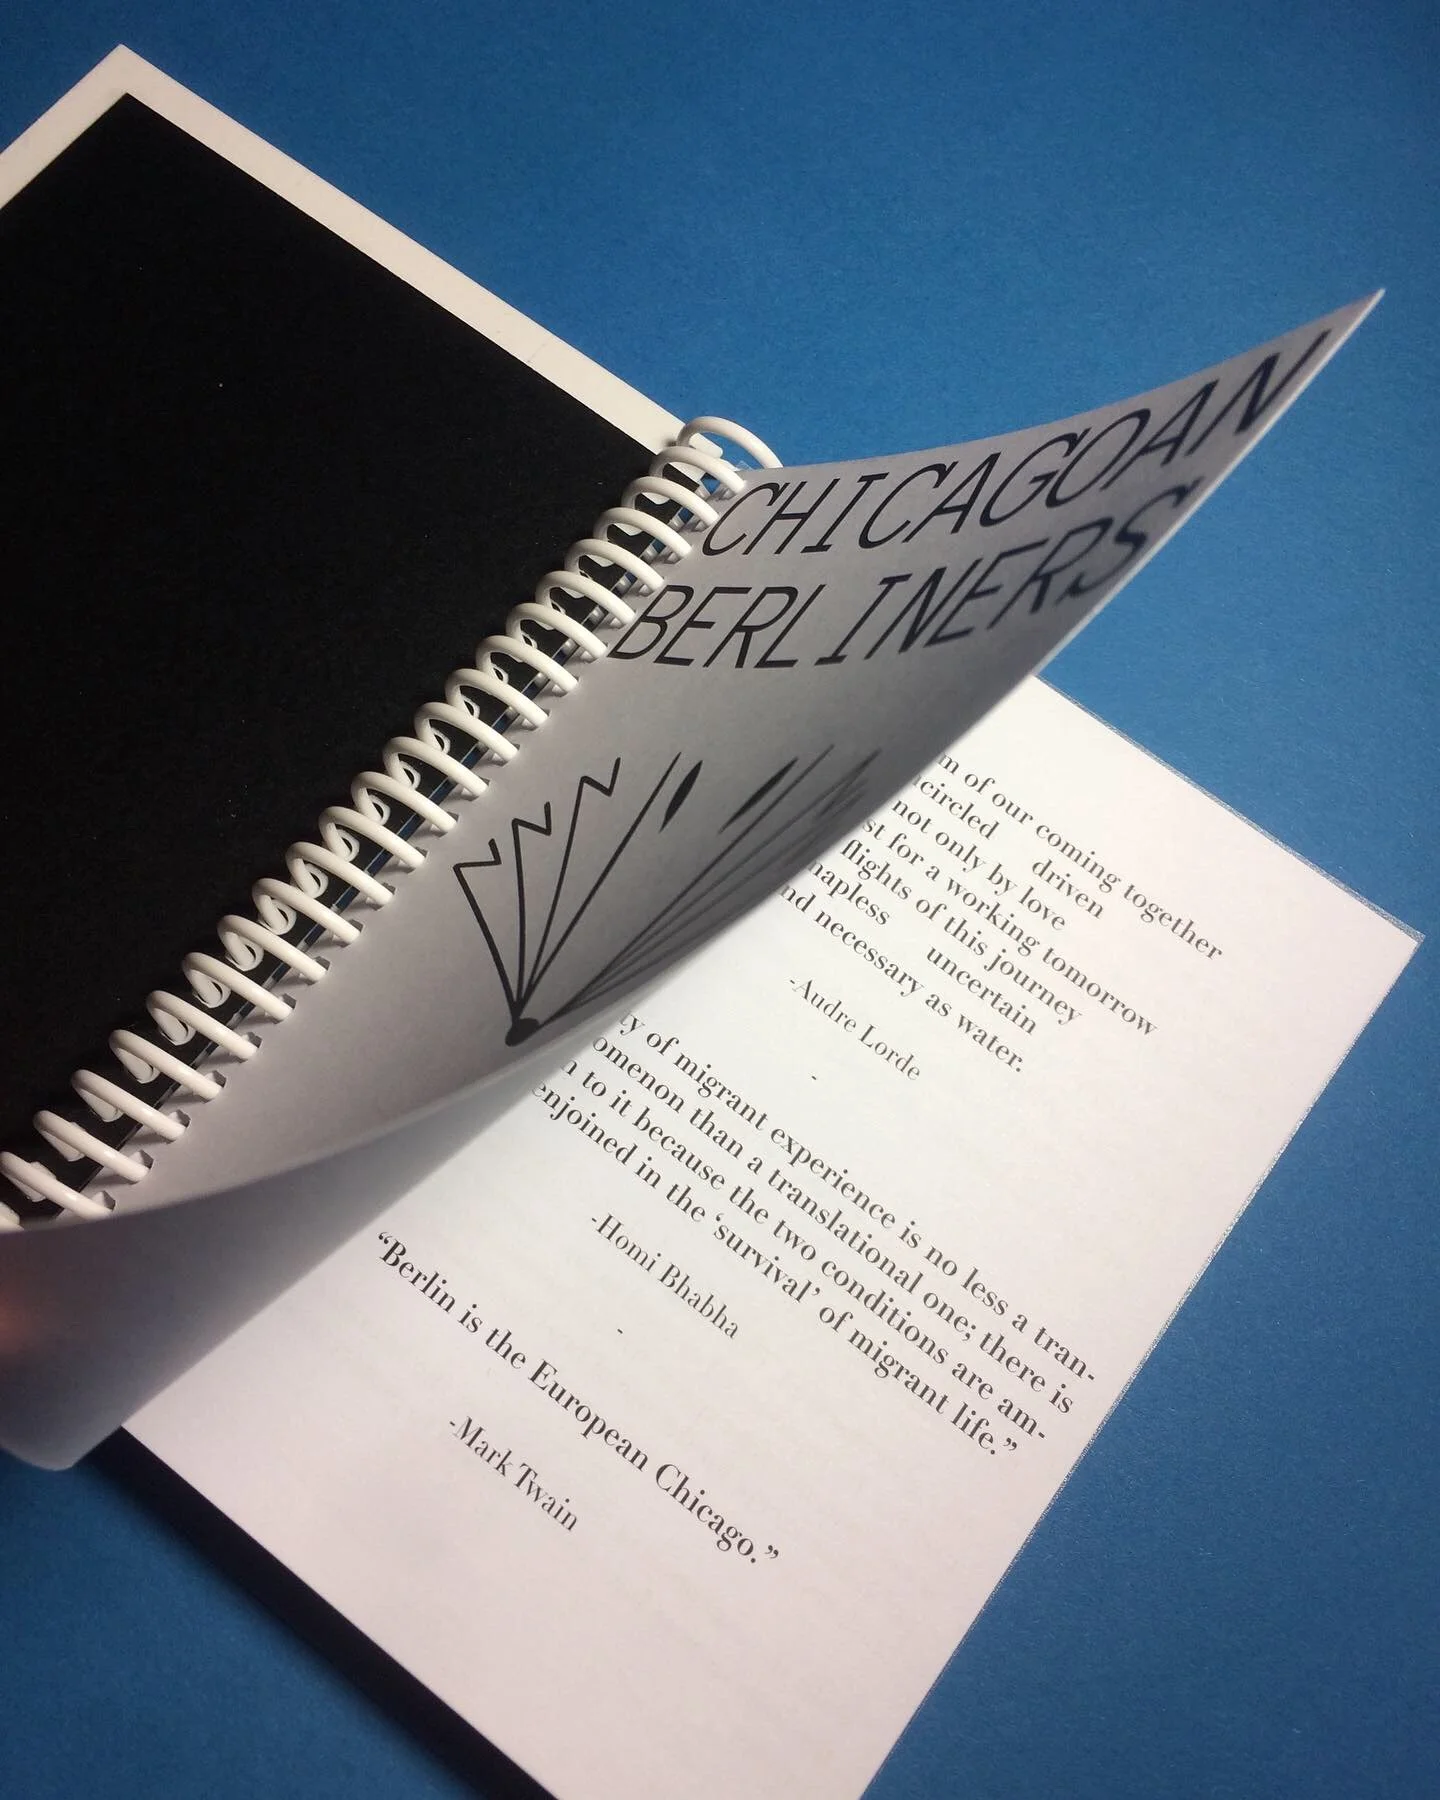 CHICAGOAN
BERLINERS
of our coming together
driven
not only by love
for a working tomorrow
flights of this journey
uncertain
necessary as water.
-Audre Lorde
-
of migrant experience is no less a tran-
than a translational one; there is
to it because the two conditions are am-
enjoined in the ‘survival’ of migrant life.”
-Homi Bhabha
-
“Berlin is the European Chicago.”
-Mark Twain